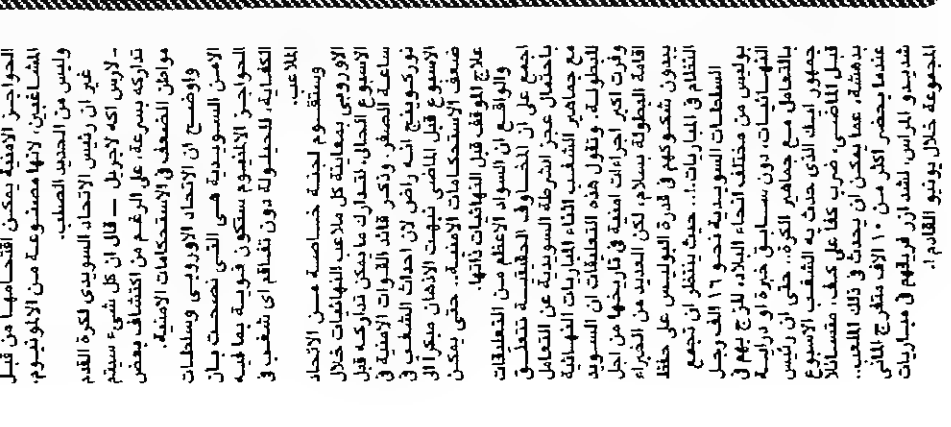 الحواجز الامنية يمكن اقتحامها من قبل
المشاغبين، لانها مصنوعة من الالومنيوم،
وليس من الحديد الصلب.
غير ان رئيس الاتحاد السويدى لكرة القدم
ـ لارس اكه لاجريل ـ قال ان كل شىء سيتم
تداركه بسرعة، على الرغم من اكتشاف بعض
مواطن الضعف فى الاستحكامات الامنية.
واوضح ان الاتحاد الاوروبى وسلطات
الامن السويدية هى التى نصحت بان
الحواجز الالمنيوم ستكون قوية بما فيه
الكفاية، للحيلولة دون تفاقم اى شغب فى
الملاعب.
وستقوم لجنة خاصة من الاتحاد
الاوروبى بمعاينة كل ملاعب النهائيات خلال
الاسبوع الحالى، لتدارك ما يمكن تداركه قبل
ساعة الصفر. وذكر قائد القوات الامنية فى
نوركوبينج انه راض لان احداث الشغب فى
الاسبوع قبل الماضى نبهت الاذهان مبكرا الى
ضعف الاستحكامات الامنية.. حتى يمكن
علاج الموقف قبل النهائيات ذاتها.
والواقع ان السواد الاعظم من التعليقات
اجمع على ان المخاوف الحقيقية تتعلق
باحتمال عجز الشرطة السويدية عن التعامل
مع جماهير الشغب اثناء المباريات النهائية
للبطولة. وتقول هذه التعليقات ان السويد
وفرت اكبر اجراءات امنية فى تاريخها من اجل
اقامة البطولة بسلام، لكن العديد من الخبراء
يبدون شكوكهم فى قدرة البوليس على حفظ
النظام فى المباريات.. حيث ينتظر ان تجمع
السلطات السويدية نحو ١٦ الف رجل
بوليس من مختلف انحاء البلاد، للزج بهم فى
النهائيات، دون سابق خبرة او دراية
بالتعامل مع جماهير الكرة.. حتى ان رئيس
جمهور ايك الذى حدث به الشغب الاسبوع
قبل الماضى، ضرب كفا على كف، متسائلا
بدهشة، عما يمكن ان يحدث فى ذلك الملعب..
عندما يحضر اكثر من ١٠ الاف متفرج المانى
شديدو المراس، لشد ازر فريقهم فى مباريات
المجموعة خلال يونيو القادم !.